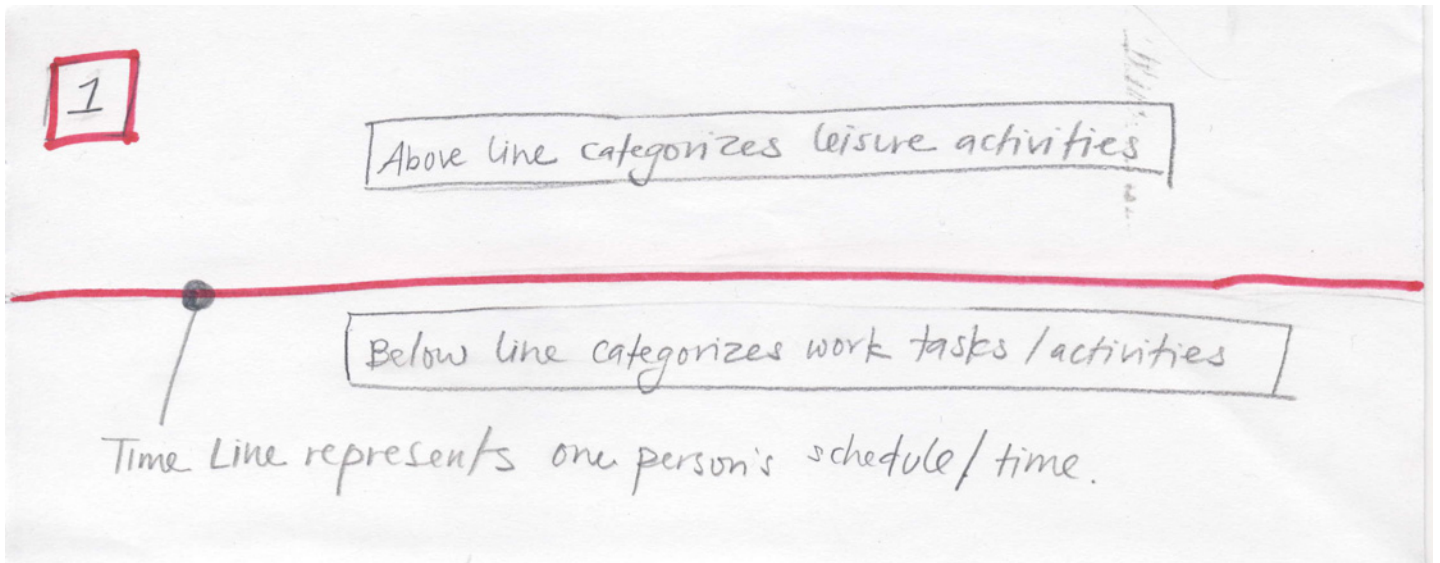 1
Above line categorizes leisure activities
Below line categorizes work tasks / activities
Time Line represents one person's schedule / time.